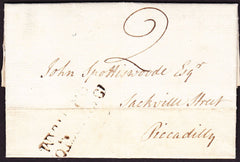 2
John Spottiswoode Esqr
Sackville Street
Piccadilly